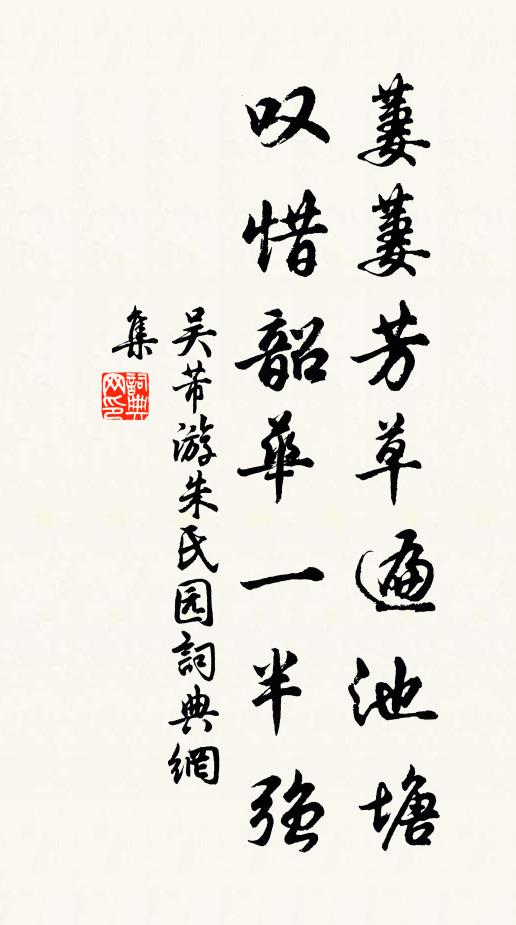 萋萋芳草遍池塘
叹惜韶华一半强
吴芾游朱氏园詞典網
集
詞典
网印